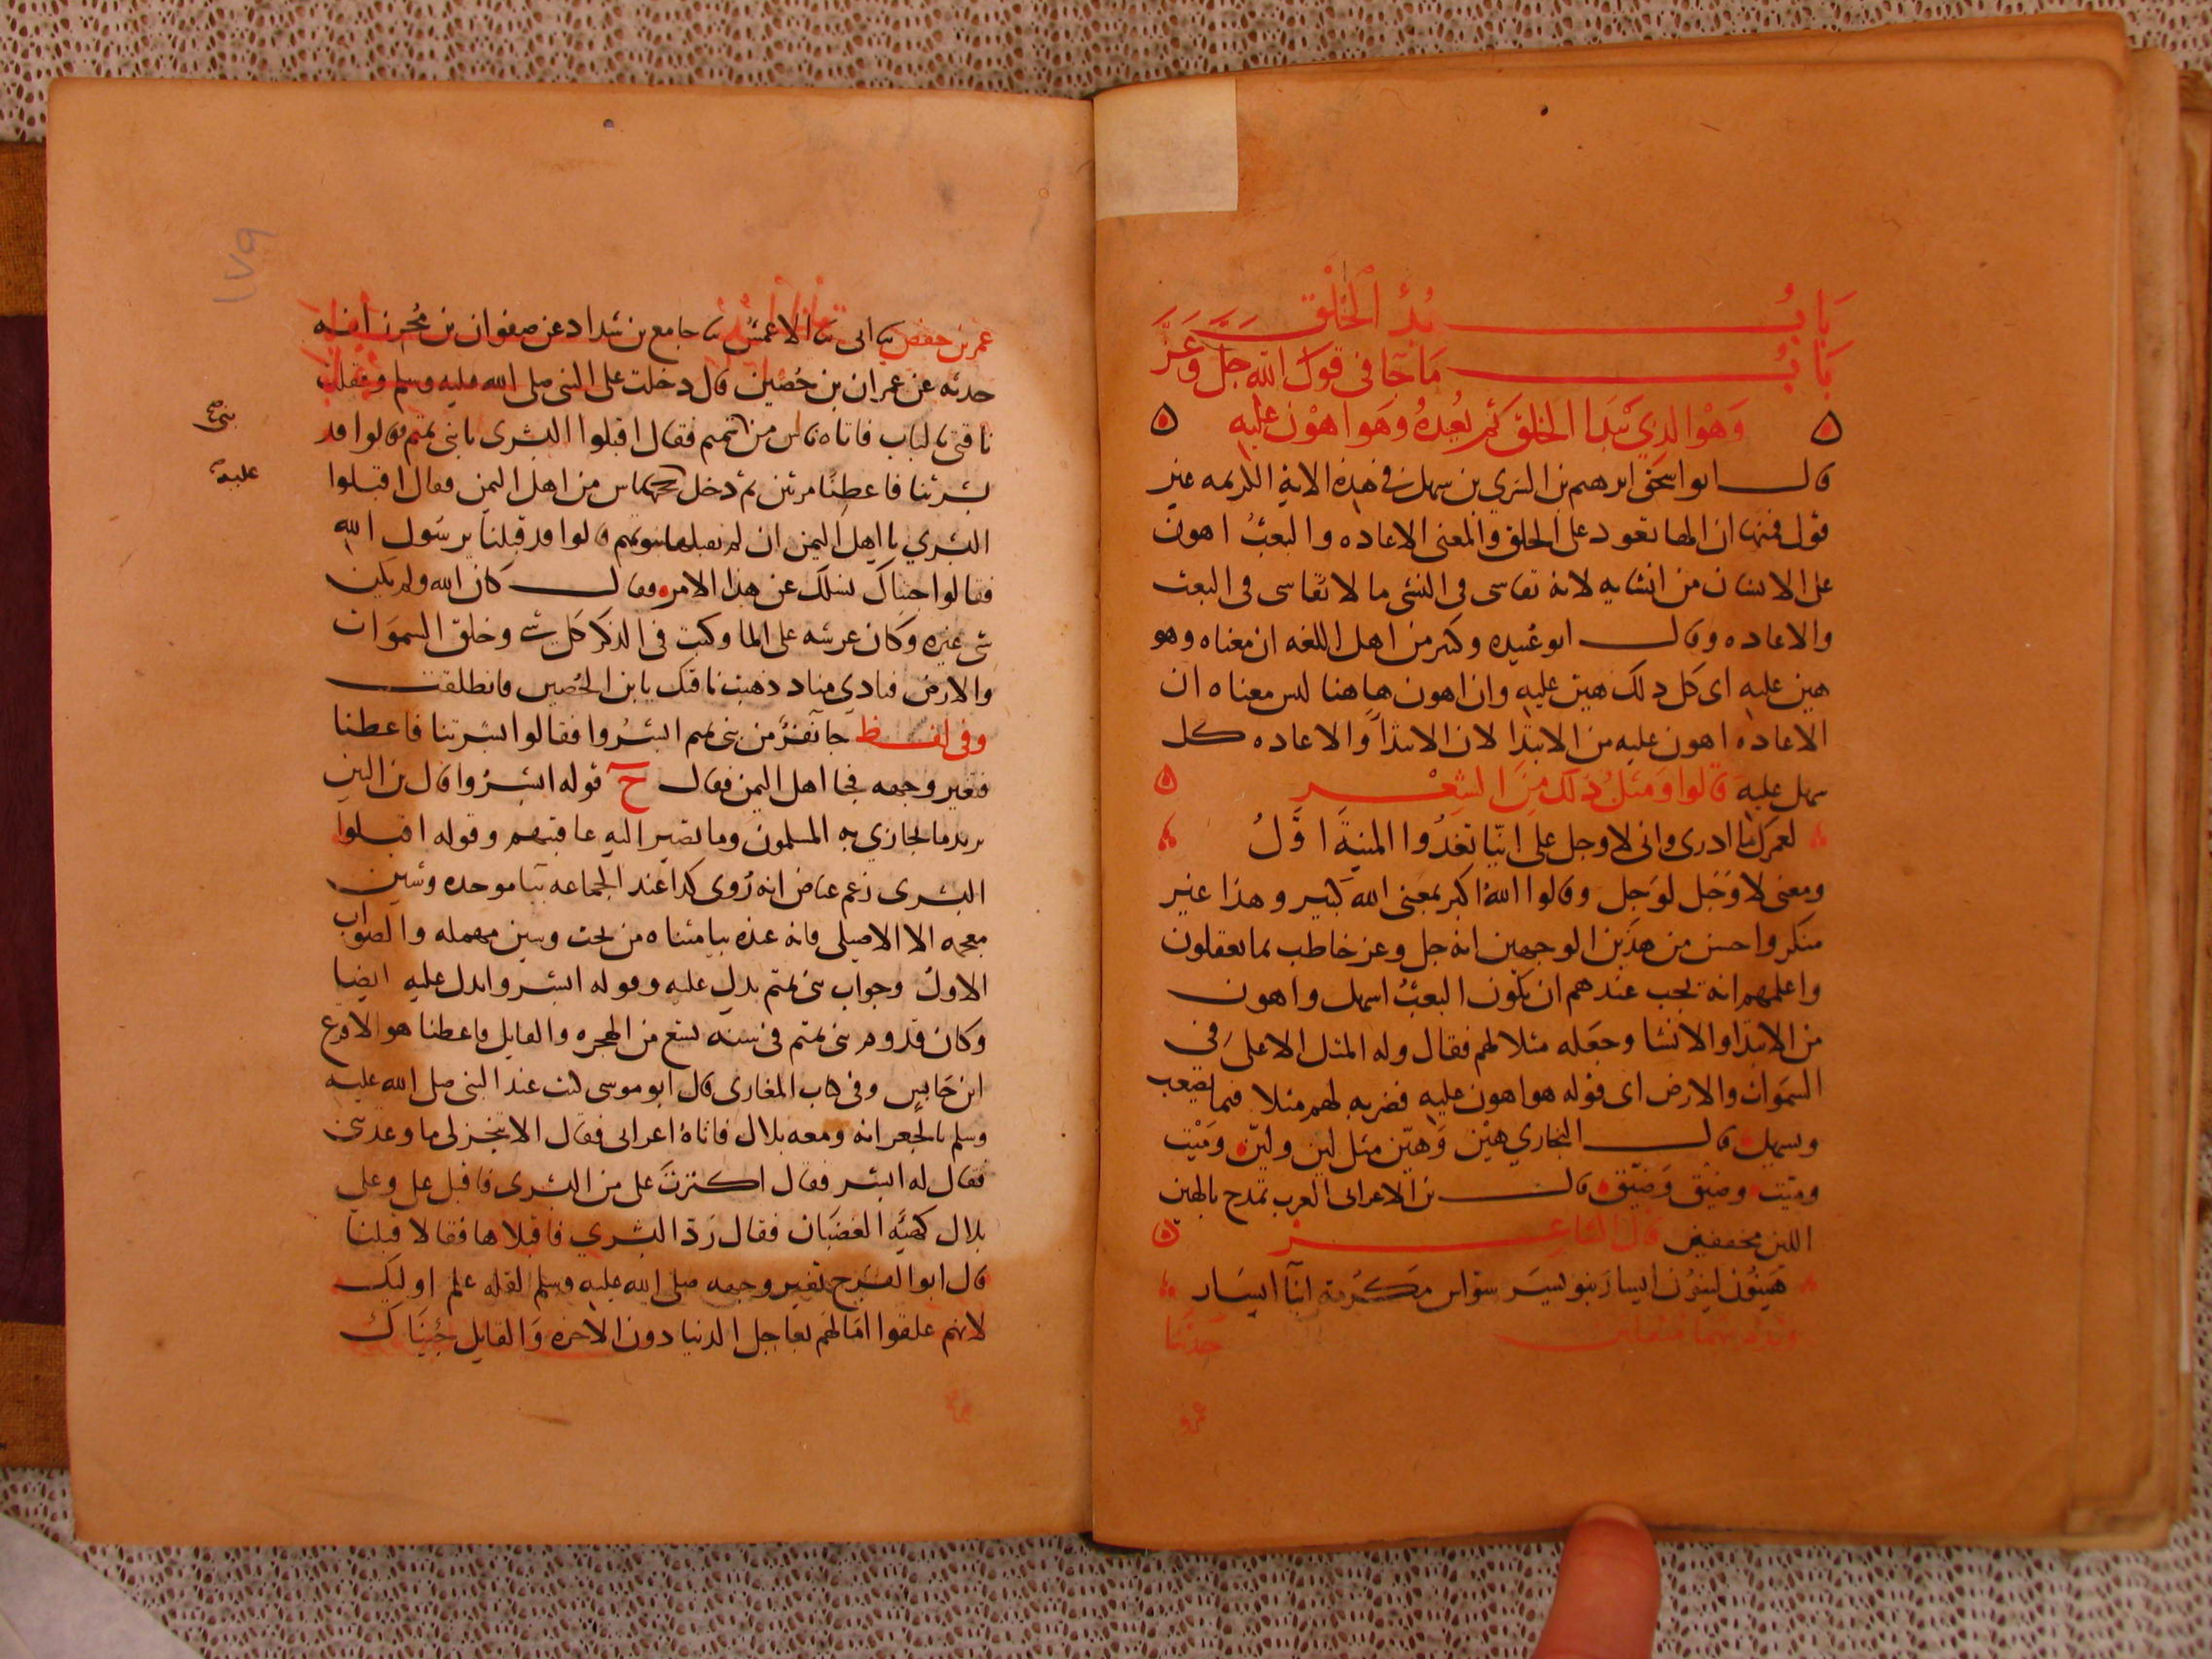 بَابُ بُدِئ الْخَلْق
بَابُ مَا جَا في قول الله جل وَعَزَّ
وَهْوَ الذِي يَبدَا الخلق ثم يُعيدُهُ وَهو اهْوَن عليه
قال ابو اسحق ابرهيم بن السري بن سهل في هذه الاية الكريمه غير
قول فمنها ان الها تعود على الخلق والمعنى الاعاده والبعثُ اهون
على الانسان من انشايه لانه تقاسى فى النشئ ما لا تقاسى فى البعث
والاعاده وقال ابو عُبيده وكثير من اهل اللغه ان معناه وهو
هين عليه اى كل ذلك هين عليه وان اهون هاهنا ليس معناه ان
الاعاده اهون عليه من الابتدا لان الابتدا والاعاده كل
سهل عليه قالوا وَمثلُ ذلك مِنَ الشِعْر
لعمرك ما ادرى وانى لاوجل على ايّنا تغدُوا المنيةُ اوَّلُ
ومعنى لاوْجَل لوَجِل وقالوا اللهُ اكبر بمعنى الله كبير وهذا غير
منكر واحسن من هذين الوجهين انه جل وعز خاطب بما يعقلون
واعلمهم انه يجب عندهم ان يكون البعثُ اسهل واهون
من الابتدا والانشا وجعَله مثلا لهم فقال وله المثل الاعلى في
السمَوات والارض اى قوله هو اهون عليه فضربه لهم مثلا فيما يصعب
ويسهل قال البخاري هيْن وَهيّن مثل ليْن وليّن ومَيْت
وميّت وضيْق وَضيّق قال بن الاعرابى العرب تمدح بالهيْن
الليْن مخففين قال الشاعر
هَيْنُون ليْنُون ايسار بنو يسَر سوّاس مَكرُمة ابنآ ايسَار
حَدثنا
عمر بن حفص ثنا ابى ثنا الاعمش ثنا جامع بن شداد عن صفوان بن مُحرز انه
حدثه عن عمران بن حُصين قال دخلت على النبى صلى الله عليه وسلم وعقلت
ناقتى بالباب فاتاه ناس من تميم فقال اقبلوا البشرى يا بنى تميم قالوا قد
بنى صح
بشرتنا فاعطِنا مرتين ثم دخل ناس من اهل اليمن فقال اقبلوا
عليه صح
البشري يا اهل اليمن ان لم يقبلها بنو تميم قالوا قد قبلنا يرسُول الله
فقالوا جيناك نسلك عن هذا الامر فقال كان الله ولم يكن
شى غيره وكان عرشه على الما وكتب فى الذكر كل شي وخلق السموَات
والارض فنادي مناد ذهبت ناقتك يابن الحُصين فانطلقت
وفى لفظ جآ نفرٌ من بنى تميم ابشرُوا فقالوا بشرتنا فاعطنا
فتغير وجهه فجا اهل اليمن فقال ح قوله ابشرُوا قال بن التين
يريد ما يجازي به المسلمون وما تصير اليه عاقبتهم وقوله اقبلوا
البشرى زعم عياض انه رُوى كذا عند الجماعه ببآ موحده وشين
معجمه الا الاصيلى فانه عنده بيا مثناه من تحت وسين مهمله والصواب
الاول وجواب بنى تميم يدل عليه وقوله ابشروا يدل عليه ايضا
وكان قدوم بنى تميم فى سنه تسع من الهجره والقايل فاعطنا هو الاقرع
ابن حَابس وفى كتاب المغازى قال ابو موسى كنت عند النبى صلى الله عليه
وسلم بالجعرانه ومعه بلال فاتاهُ اعرابى فقال الا تنجز لى ما وعدتنى
فقال له ابشر فقال اكثرتَ على من البشرى فاقبل على وعلي
بلال كهيئه الغضبَان فقال رَدّ البشري فاقبلاها فقالا قبلنا
قال ابو الفرج تغير وجهه صلى الله عليه وسلم لقله علم اوليك
لانهم علقوا امَالهم بعاجل الدنيا دون الاخره وَالقايل جئنَاك